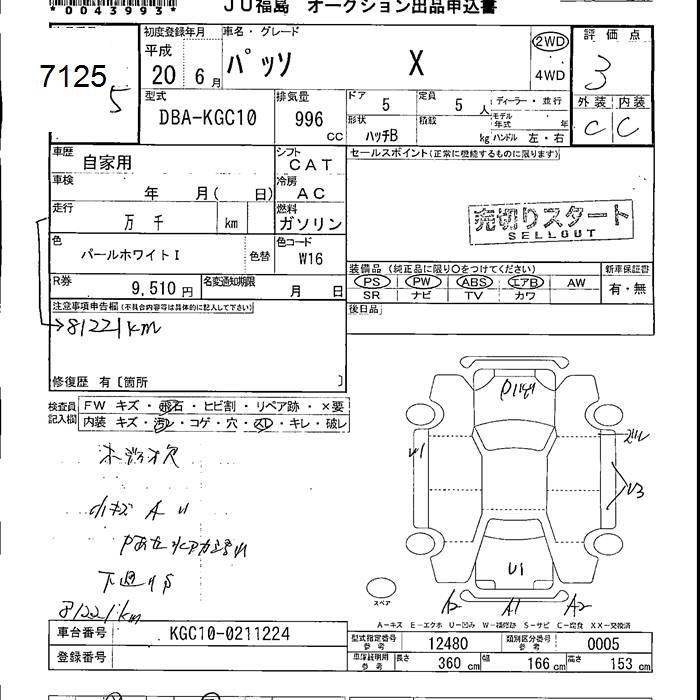 *0043993*
JU福島 オークション出品申込書
7125
5
初度登録年月
平成
20 6月
車名・グレード
パッソ X
2WD
4WD
評価点
3
外装 内装
C C
型式
DBA-KGC10
排気量
996
CC
ドア
5
定員
5 人
ディーラー・並行
形状
ハッチB
積載
kg
モデル年式
年
ハンドル 左・右
車歴
自家用
シフト
CAT
セールスポイント(正常に機能するものに限ります)
車検
年 月( 日)
冷房
AC
走行
万 千 km
燃料
ガソリン
売切りスタート
SELLOUT
色
パールホワイトI
色替
色コード
W16
R券
9,510 円
名変通知期限
月 日
装備品 (純正品に限り○をつけてください)
PS PW ABS エアB AW
SR ナビ TV カワ
新車保証書
有・無
後日品
注意事項申告欄(不具合内容等は具体的に記入して下さい)
→81221km
修復歴 有〔箇所 〕
検査員
記入欄
FW キズ・飛石・ヒビ割・リペア跡・×要
内装 キズ・汚レ・コゲ・穴・スレ・キレ・破レ
小キズ A U
下廻りS
81221km
U1
U3
U1
A2 A1 A2
スペア
A−キズ E−エクボ U−凹み W−補修跡 S−サビ C−腐食 XX−交換済
車台番号
KGC10-0211224
登録番号
型式指定番号
参考
12480
類別区分番号
参考
0005
車庫証明用
参考
長さ
360 cm
幅
166 cm
高さ
153 cm